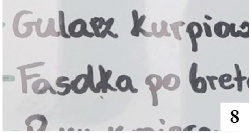 - Gulasz kurpiow
- Fasolka po breto
8